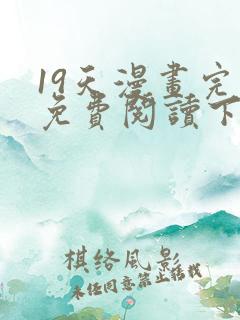 19天漫畫完
免費閱讀下
棋絡風影
未经同意禁止转载